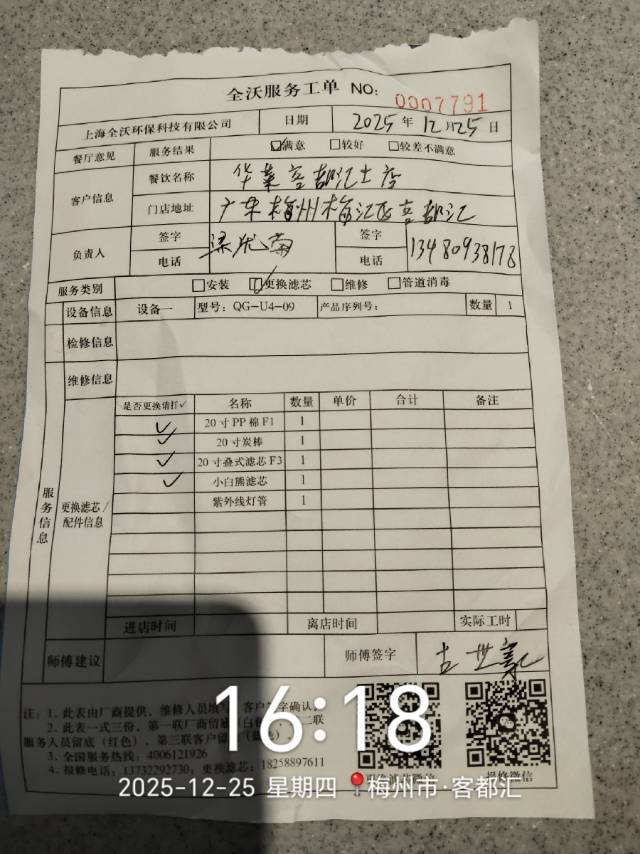 全沃服务工单 NO: 0007791
上海全沃环保科技有限公司 日期 2025年12月25日
餐厅意见 服务结果 ☑满意 □较好 □较差不满意
客户信息 餐饮名称 华莱
门店地址 广东梅州梅江区客都汇
负责人 签字 签字
电话 电话 13480938178
服务类别 □安装 ☑更换滤芯 □维修 □管道消毒
设备信息 设备一 型号: QG-U4-09 产品序列号: 数量 1
检修信息
维修信息
服务信息
更换滤芯/配件信息
是否更换请打✓ 名称 数量 单价 合计 备注
✓ 20寸PP棉F1 1
✓ 20寸炭棒 1
✓ 20寸叠式滤芯F3 1
✓ 小白熊滤芯 1
紫外线灯管 1
进店时间 离店时间 实际工时
师傅建议 师傅签字
注: 1、此表由厂商提供, 维修人员填 客户 字确认
2、此表一式三份, 第一联厂商留底(白色 二联
服务人员留底(红色), 第三联客户留
3、全国服务热线: 4006121926
4、报修电话: 13732292730; 更换滤芯: 18258897611
报修微信
16:18
2025-12-25 星期四 梅州市·客都汇